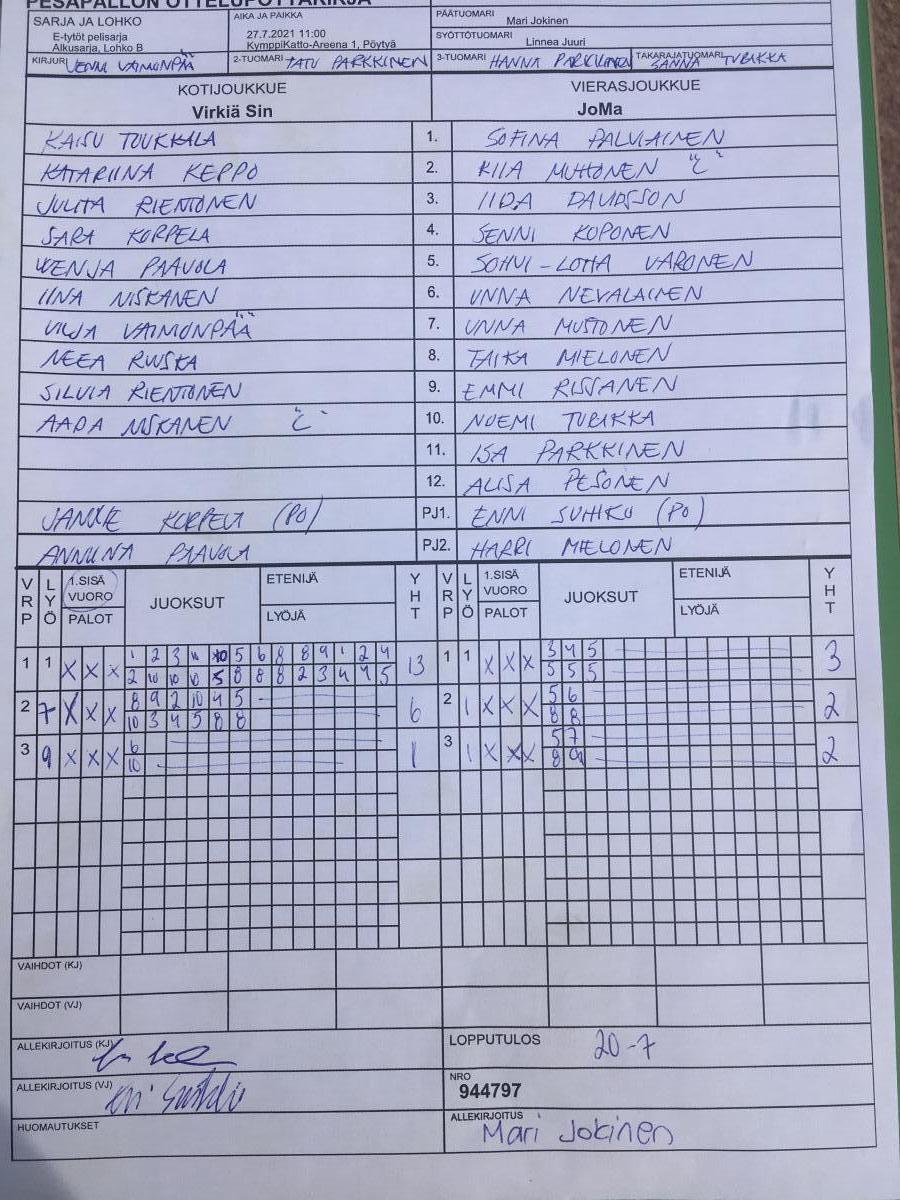 PESÄPALLON OTTELUPÖYTÄKIRJA
SARJA JA LOHKO
E-tytöt pelisarja
Alkusarja, Lohko B
AIKA JA PAIKKA
27.7.2021 11:00
KymppiKatto-Areena 1, Pöytyä
PÄÄTUOMARI
Mari Jokinen
SYÖTTÖTUOMARI
Linnea Juuri
KIRJURI VENM VAIMONPÄÄ
2-TUOMARI TATU PARKKINEN
3-TUOMARI HANNA PARKKINEN
TAKARAJATUOMARI SANNA TUBIKKA
KOTIJOUKKUE
Virkiä Sin
VIERASJOUKKUE
JoMa
KAISU TOUKKALA 1. SOFINA PALVIAINEN
KATARIINA KEPPO 2. KIIA MUHONEN "C"
JULITA RIENTONEN 3. IIDA DAVIDSSON
SARA KORPELA 4. SENNI KOPONEN
WENJA PAAVOLA 5. SOHVI-LOTTA VARONEN
IINA NISKANEN 6. UNNA NEVALAINEN
VILJA VAIMONPÄÄ 7. UNNA MUSTONEN
NEEA RUUSKA 8. TAIKA MIELONEN
SILVIA RIENTONEN 9. EMMI RISSANEN
AADA NISKANEN "C" 10. NOEMI TUBIKKA
11. ISA PARKKINEN
12. ALISA PESONEN
KORPELA (PO) PJ1. ENNI SUHKO (PO)
ANNIINA PAAVOLA PJ2. HARRI MIELONEN
VRP LYÖ 1.SISÄ VUORO PALOT JUOKSUT ETENIJÄ LYÖJÄ YHT VRP LYÖ 1.SISÄ VUORO PALOT JUOKSUT ETENIJÄ LYÖJÄ YHT
1 1 X X X 1 2 3 4 10 5 6 8 8 9 1 2 4 13 1 1 X X X 3 4 5 3
2 10 10 10 5 8 8 8 2 3 4 4 5 5 5 5
2 7 X X X 8 9 2 10 4 5 6 2 1 X X X 5 6 2
10 3 4 5 8 8 8 8
3 9 X X X 6 1 3 1 X X X 5 7 2
10 8 9
VAIHDOT (KJ)
VAIHDOT (VJ)
ALLEKIRJOITUS (KJ)
LOPPUTULOS 20-7
ALLEKIRJOITUS (VJ)
NRO
944797
HUOMAUTUKSET
ALLEKIRJOITUS
Mari Jokinen